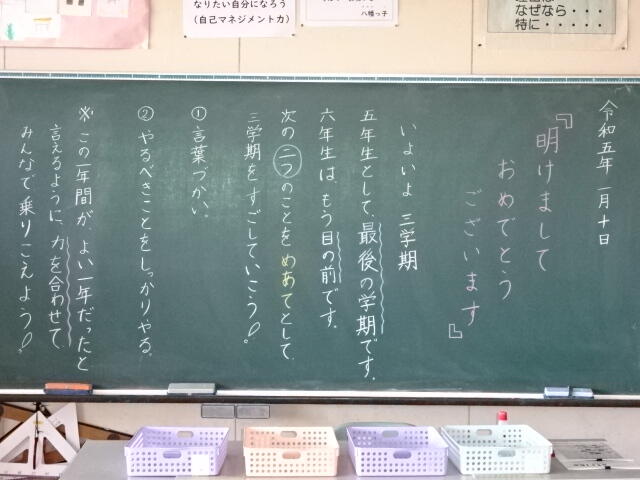 なりたい自分になろう
（自己マネジメント力）
八幡っ子
なぜなら・・・・・
特に・・・・・
令和五年 一月十日
『明けまして
おめでとう
ございます』
いよいよ 三学期
五年生として、最後の学期です。
六年生は もう目の前です。
次の二つのことを めあてとして、
三学期をすごしていこう！。
① 言葉づかい。
② やるべきことをしっかりやる。
※ この一年間が、よい一年だったと
言えるように、力を合わせて、
みんなで乗りこえよう！。